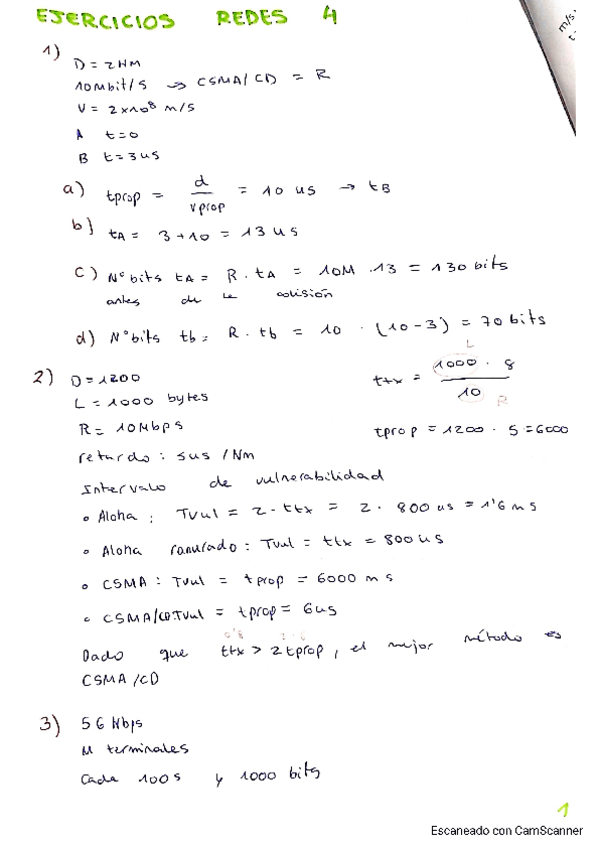 EJERCICIOS REDES 4
m/s
1)
D = 2KM
10Mbit/s → CSMA/CD = R
V = 2x10⁸ m/s
A t=0
B t=3us
a) tprop = d / vprop = 10 us → tB
b) tA = 3+10 = 13us
c) Nº bits tA = R . tA = 10M . 13 = 130 bits
antes de la colisión
d) Nº bits tb = R . tb = 10 . (10-3) = 70 bits
2) D=1200
L = 1000 bytes
R = 10Mbps
ttx = 1000 . 8 / 10
L
R
tprop = 1200 . 5 = 6000
retardo: 5us /Km
Intervalo de vulnerabilidad
• Aloha : Tvul = 2 . ttx = 2 . 800 us = 1'6 ms
• Aloha ranurado : Tvul = ttx = 800us
• CSMA : Tvul = tprop = 6000 ms
• CSMA/CD Tvul = tprop = 6us
Dado que ttx > 2tprop, el mejor método es
CSMA/CD
3) 56 Kbps
M terminales
Cada 100s y 1000 bits
1
Escaneado con CamScanner